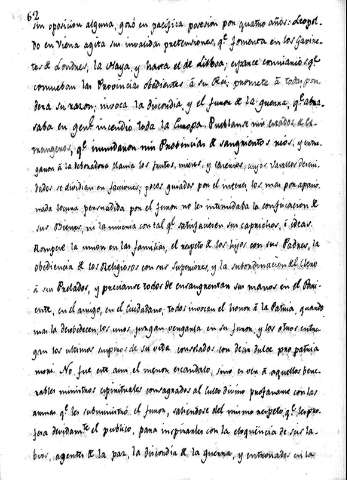 62
sin oposicion alguna, gozó en pacifica posesion por quatro años: Leopol-
do en Viena agita sus invalidas pretensiones, qᵉ fomenta en los Gavine-
tes de Londres, la Haya, y hasta el de Lisboa; esparce comisarios qᵉ
conmueban las Provincias obedientes á su Rei; promete á todas pon-
dera su razon; invoca la discordia, y el furor de la guerra, qᵉ abra-
saba en genˡ incendio toda la Europa. Pueblanse mis Estados de Es-
trangeros, qᵉ inundaron mis Provincias de sangrientos rios, y entre-
garon á la abrasadora llama los frutos, mieses, y
dades se dividian en faciones; pocos guiados por el interes, los mas por apasio-
nada locura persuadida por el furor no les intimidaba la confiscacion de
sus Bienes, ni la muerte con tal qᵉ satisfaciesen sus caprichos, é ideas.
Rompese la union en las familias, el respeto de los hijos con sus Padres, la
obediencia de los Religiosos con sus Superiores, y la subordinacion del Clero
á sus Prelados, y precianse todos de ensangrentar sus manos en el Pari-
ente, en el amigo, en el Ciudadano; todos invocan el honor á la Patria, quando
mas la desobedecen; los unos, juzgan venganza en su furor, y los otros entre-
gan los ultimos suspiros de su vida consolados con decir dulce pro patria
mori. No fue este aun el menor escandalo, sino es ver á aquellos vene-
rables ministros espirituales consagrados al culto divino profanarse con las
armas qᵉ les subministró el furor, valiendose del mismo respeto, qᵉ les pro-
fesa devidamᵗᵉ el publico, para inspirarles con la eloquencia de sus la-
bios, agentes de la paz, la discordia de la guerra, y entronados en la